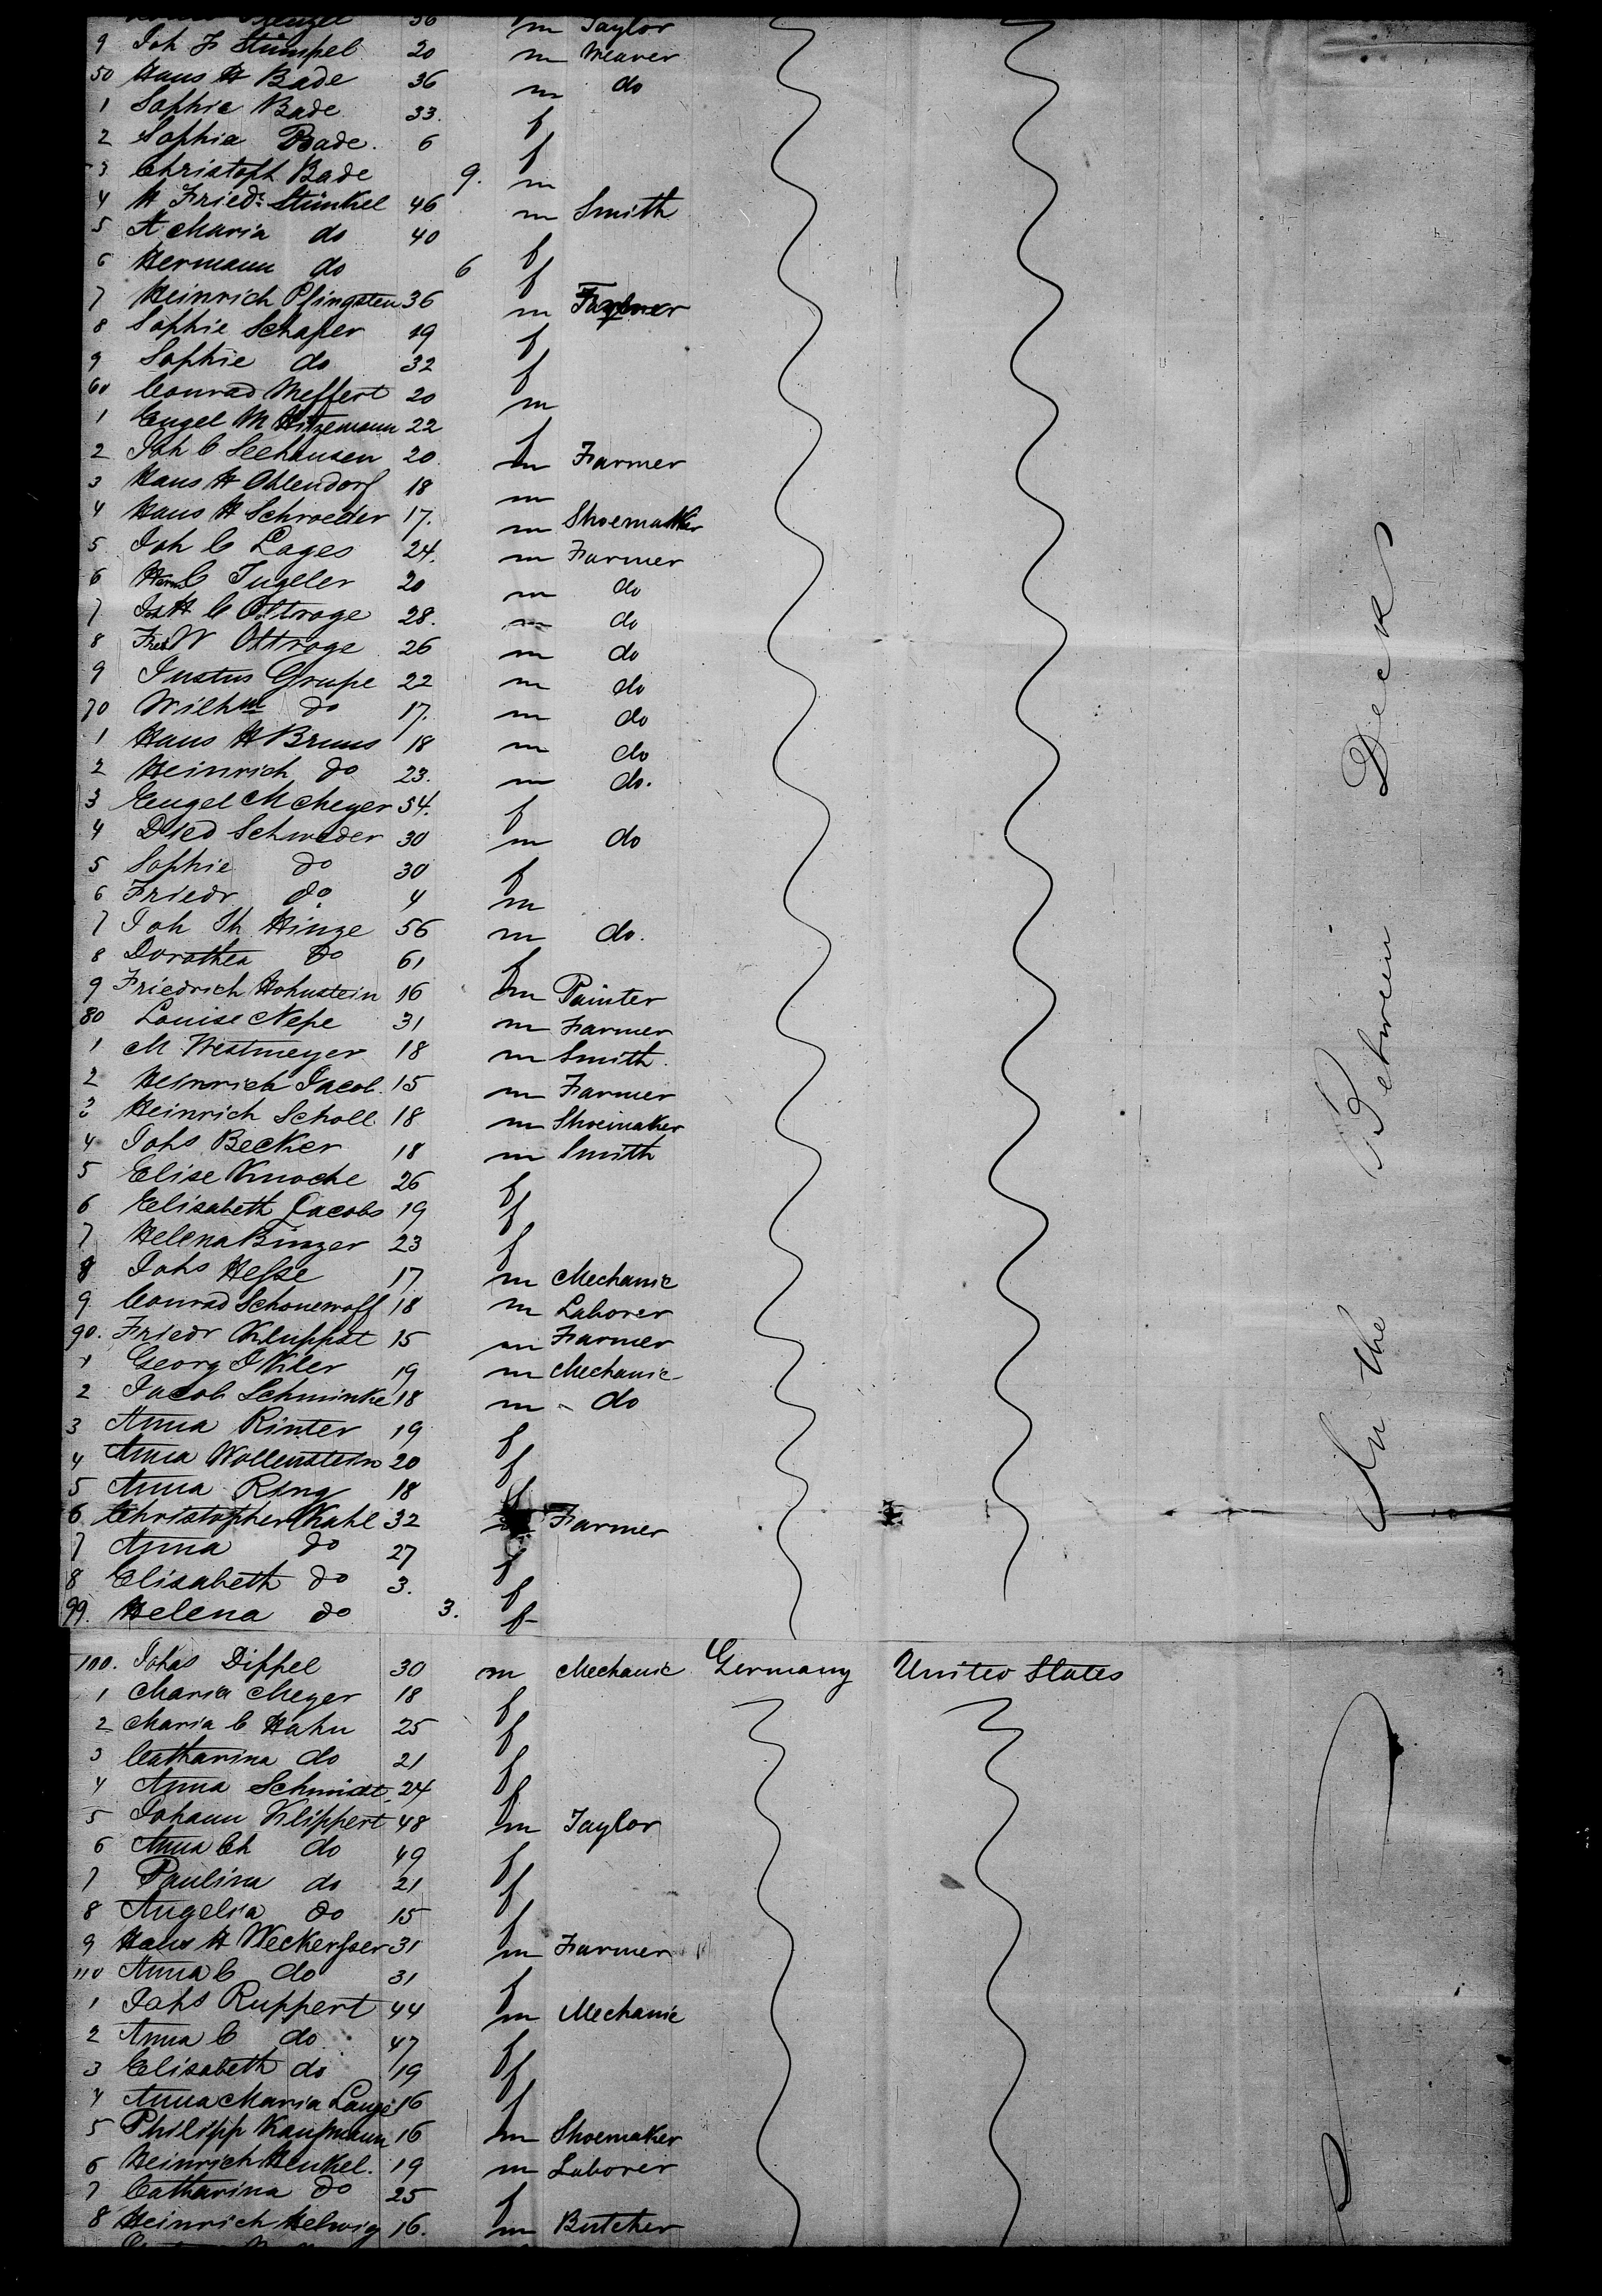 36 m Taylor
9 Joh F Stümpel 20 m Weaver
50 Hans H Bade 36 m do
1 Sophie Bade 33. f
2 Sophia Bade. 6 f
3 Christoph Bade 9. m
4 H Friedr Stünkel 46 m Smith
5 A Maria do 40 f
6 Hermann do 6 f
7 Heinrich Pfingsten 36 m Farmer
8 Sophie Schaper 19 f
9 Sophie do 32 f
60 Conrad Meffert 20 m
1 Engel M Hitzemann 22 f
2 Joh C Seehausen 20 m Farmer
3 Hans H Ohlendorf 18 m
4 Hans H Schroeder 17. m Shoemaker
5 Joh C Lages 24. m Farmer
6 Herm C Tugeler 20 m do
7 H C Ottroge 28. m do
8 Fred W Ottroge 26 m do
9 Justus Grupe 22 m do
70 Wilhm do 17. m do
1 Hans H Bruns 18 m do
2 Heinrich do 23. m do.
3 Engel M Meyer 54. f
4 Died Schroeder 30 m do
5 Sophie do 30 f
6 Friedr do 4 m
7 Joh Th Hinze 56 m do.
8 Dorothea do 61 f
9 Friedrich Hohnstein 16 m Painter
80 Louise Nepe 31 m Farmer
1 M Westmeyer 18 m Smith.
2 Heinrich Jacob. 15 m Farmer
3 Heinrich Scholl. 18 m Shoemaker
4 Johs Becker 18 m Smith
5 Elise Knoche 26 f
6 Elisabeth Jacobs 19 f
7 Helena Binzer 23 f
8 Johs Hesse 17 m Mechanic
9 Conrad Schonewolf 18 m Laborer
90. Friedr Kluppat 15 m Farmer
1 Georg Ikler 19 m Mechanic
2 Jacob Schminke 18 m - do
3 Anna Rinter 19 f
4 Anna Wollenstein 20 f
5 Anna Ring 18 f
6 Christopher Kahl 32 m Farmer
7 Anna do 27 f
8 Elisabeth do 3. f
99. Helena do 3. f
100. Johs Dippel 30 m Mechanic Germany United States
1 Maria Meyer 18 f
2 Maria C Hahn 25 f
3 Catharina do 21 f
4 Anna Schmidt. 24 f
5 Johann Klippert 48 m Taylor
6 Anna Ch do 49 f
7 Paulina do 21 f
8 Angelia do 15 f
9 Hans H Weckesser 31 m Farmer
110 Anna C do 31 f
1 Johs Ruppert 44 m Mechanic
2 Anna C do 47 f
3 Elisabeth do 19 f
4 Anna Maria Lange 16 f
5 Philipp Kaufmann 16 m Shoemaker
6 Heinrich Henkel. 19 m Laborer
7 Catharina do 25 f
8 Heinrich Helwig 16. m Butcher
In the Between Deck